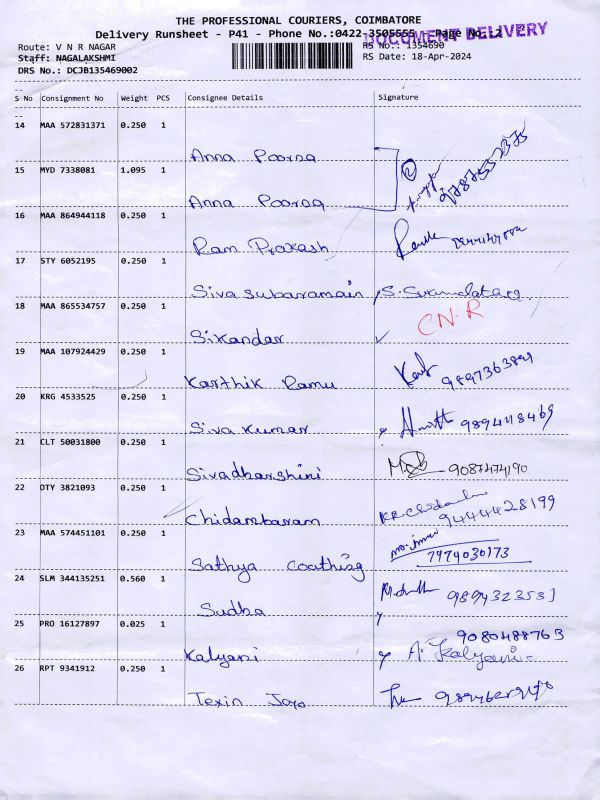 THE PROFESSIONAL COURIERS, COIMBATORE
Delivery Runsheet - P41 - Phone No.:0422-3505555 Page No.:2
DOCUMENT DELIVERY
Route: V N R NAGAR
RS No.: 1354690
Staff: NAGALAKSHMI
RS Date: 18-Apr-2024
DRS No.: DCJB135469002
S No Consignment No Weight PCS Consignee Details Signature
14 MAA 572831371 0.250 1
Anna Poorna
15 MYD 7338081 1.095 1
Anna Poorna
16 MAA 864944118 0.250 1
Ram Prakash
17 STY 6052195 0.250 1
Siva subaramain
18 MAA 865534757 0.250 1
CN-R
Sikandar
19 MAA 107924429 0.250 1
Karthik Ramu
20 KRG 4533525 0.250 1
Siva kumar
21 CLT 50031800 0.250 1
Sivadharshini 9087474190
22 OTY 3821093 0.250 1
Chidambaram 9444428199
23 MAA 574451101 0.250 1
7974030173
Sathya Coathing
24 SLM 344135251 0.560 1
Sudha
25 PRO 16127897 0.025 1
9080488763
Kalyani A. Kalyani
26 RPT 9341912 0.250 1
Texin Joyo